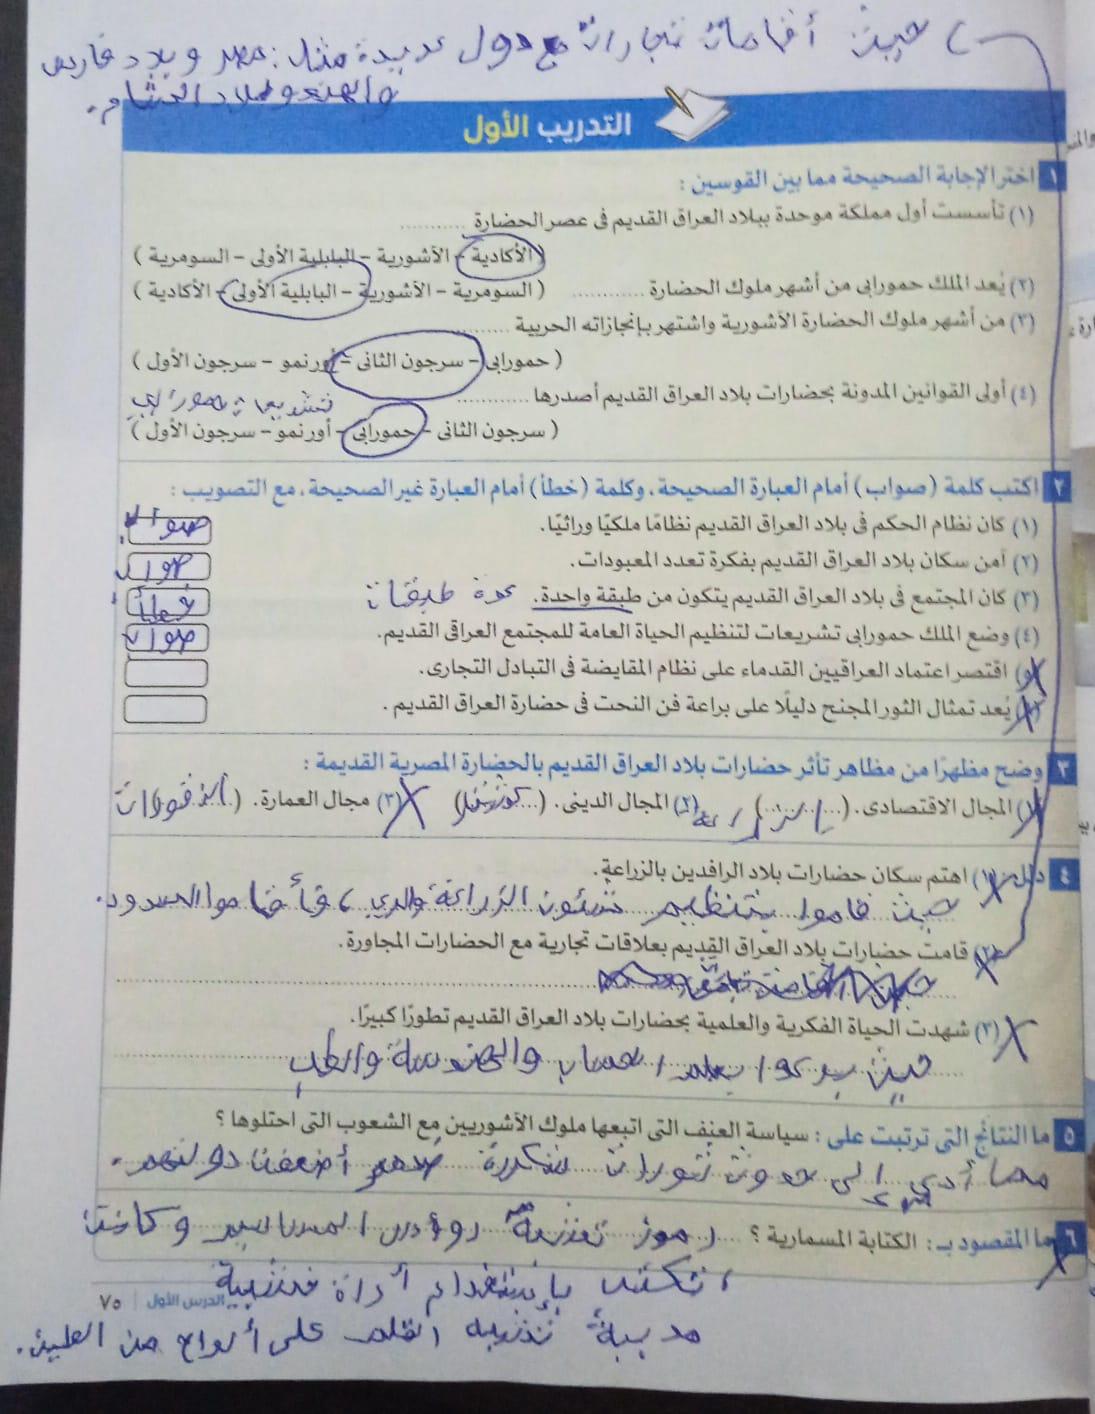 حيث أقامات تجارات مع دول عديدة مثل: مصر وبلاد فارس
والهند وبلاد الشام.
التدريب الأول
١ اختر الإجابة الصحيحة مما بين القوسين :
(١) تأسست أول مملكة موحدة ببلاد العراق القديم فى عصر الحضارة ...........
( الأكادية - الآشورية - البابلية الأولى - السومرية )
(٢) يُعد الملك حمورابى من أشهر ملوك الحضارة ........... ( السومرية - الآشورية - البابلية الأولى - الأكادية )
(٣) من أشهر ملوك الحضارة الآشورية واشتهر بإنجازاته الحربية ...........
( حمورابى - سرجون الثانى - أورنمو - سرجون الأول )
(٤) أولى القوانين المدونة بحضارات بلاد العراق القديم أصدرها ........... تشريعات حمورابي
( سرجون الثانى - حمورابى - أورنمو - سرجون الأول )
٢ اكتب كلمة (صواب) أمام العبارة الصحيحة، وكلمة (خطأ) أمام العبارة غير الصحيحة، مع التصويب :
(١) كان نظام الحكم فى بلاد العراق القديم نظامًا ملكيًا وراثيًا. صواب
(٢) آمن سكان بلاد العراق القديم بفكرة تعدد المعبودات. صواب
(٣) كان المجتمع فى بلاد العراق القديم يتكون من طبقة واحدة. عدة طبقات خطأ
(٤) وضع الملك حمورابى تشريعات لتنظيم الحياة العامة للمجتمع العراقى القديم. صواب
(٥) اقتصر اعتماد العراقيين القدماء على نظام المقايضة فى التبادل التجارى.
(٦) يُعد تمثال الثور المجنح دليلًا على براعة فن النحت فى حضارة العراق القديم .
٣ وضح مظهرًا من مظاهر تأثر حضارات بلاد العراق القديم بالحضارة المصرية القديمة :
(١) المجال الاقتصادى. ( الزراعة ) (٢) المجال الدينى. ( ) (٣) مجال العمارة. ( )
٤ دلل: (١) اهتم سكان حضارات بلاد الرافدين بالزراعة.
حيث قاموا بتنظيم شئون الزراعة والري، فأقاموا السدود.
(٢) قامت حضارات بلاد العراق القديم بعلاقات تجارية مع الحضارات المجاورة.
(٣) شهدت الحياة الفكرية والعلمية بحضارات بلاد العراق القديم تطورًا كبيرًا.
حيث برعوا بعلم الحساب والهندسة والطب
٥ ما النتائج التى ترتبت على : سياسة العنف التى اتبعها ملوك الآشوريين مع الشعوب التى احتلوها ؟
مما أدى إلى حدوث ثورات متكررة ضدهم أضعفت دولتهم.
٦ ما المقصود بـ : الكتابة المسمارية ؟ رموز تشبه رؤوس المسامير وكانت
تكتب بإستخدام أداة خشبية
الدرس الأول | ٧٥
مدببة تشبه القلم على ألواح من الطين.